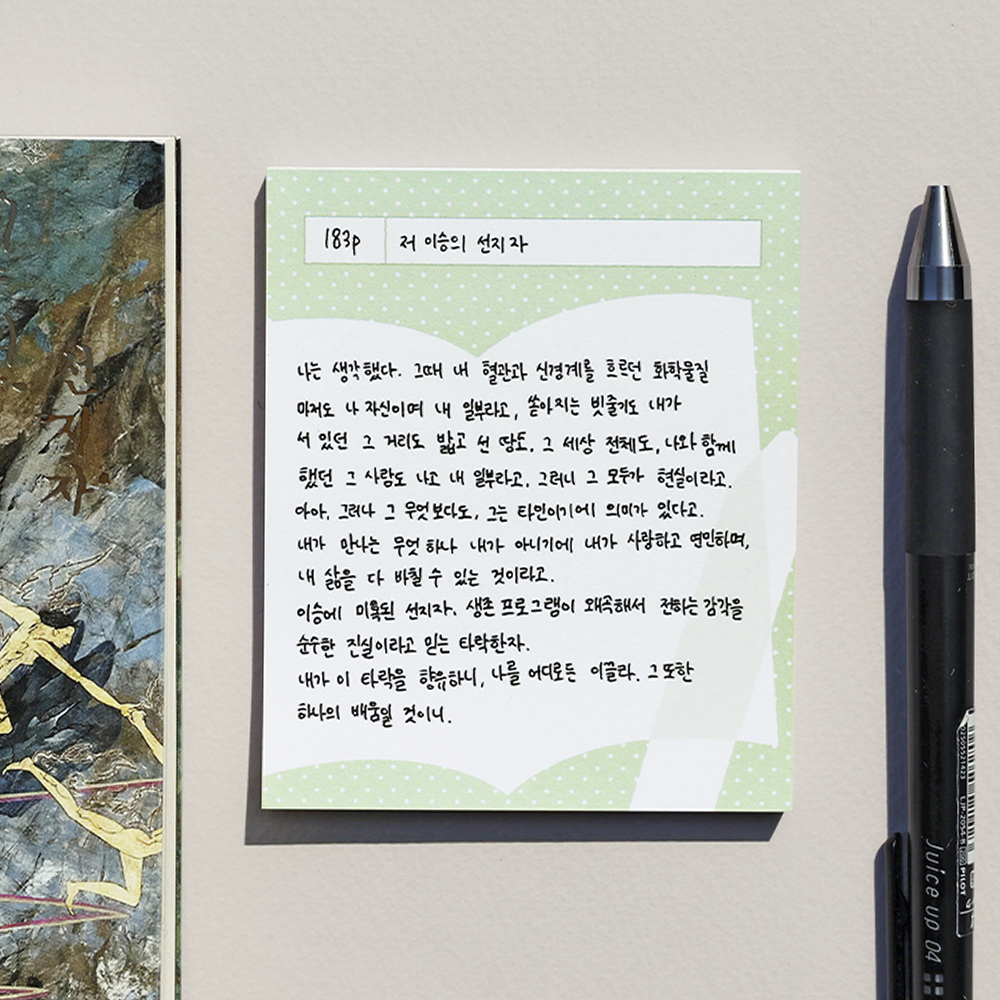 183p 저 이승의 선지자
나는 생각했다. 그때 내 혈관과 신경계를 흐르던 화학물질
마저도 나 자신이며 내 일부라고, 쏟아지는 빗줄기도 내가
서 있던 그 거리도 밟고 선 땅도, 그 세상 전체도, 나와 함께
했던 그 사람도 나고 내 일부라고, 그러니 그 모두가 현실이라고.
아아, 그러나 그 무엇보다도, 그는 타인이기에 의미가 있다고.
내가 만나는 무엇 하나 내가 아니기에 내가 사랑하고 연민하며,
내 삶을 다 바칠 수 있는 것이라고.
이승에 미혹된 선지자. 생존 프로그램이 왜곡해서 전하는 감각을
순수한 진실이라고 믿는 타락한자.
내가 이 타락을 향유하니, 나를 어디로든 이끌라. 그 또한
하나의 배움일 것이니.
선
지
자
Juice up 04
PILOT
LJP-20S4-B